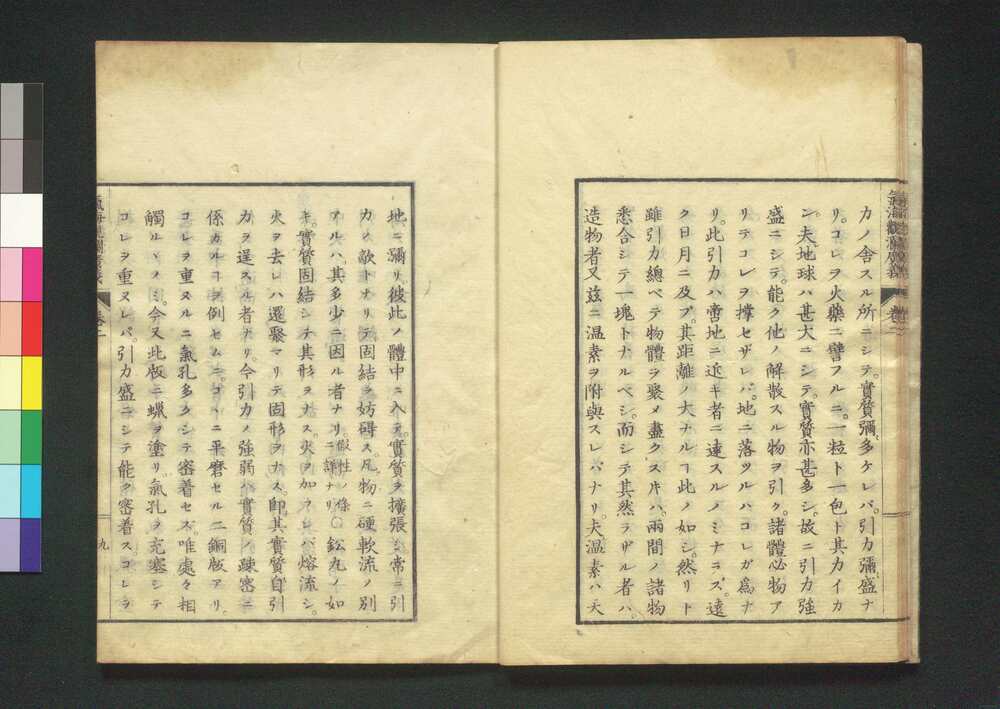 氣海觀瀾廣義 卷一
力ノ舍スル所ニシテ。實質彌多ケレバ。引力彌盛ナ
リ。コレヲ火藥ニ譬フルニ。一粒ト一包ト其力イカ
ン。夫地球ハ甚大ニシテ。實質亦甚多シ。故ニ引力強
盛ニシテ。能ク他ノ解散スル物ヲ引ク。諸體必物ア
リテコレヲ撑セザレバ。地ニ落ツルハコレガ爲ナ
リ。此引力ハ啻地ニ近キ者ニ達スルノミナラズ。遠
ク日月ニ及ブ。其距離ノ大ナルヿ此ノ如シ。然リト
雖引力總ベテ物體ヲ聚メ盡クス𪜈ハ。兩間ノ諸物
悉合シテ一塊トナルベシ。而シテ其然ラザル者ハ。
造物者又玆ニ温素ヲ附與スレバナリ。夫温素ハ天
地ニ彌リ。彼此ノ體中ニ入テ。實質ヲ擴張シ。常ニ引
力ノ敵トナリテ固結ヲ妨碍ス。凡物ニ硬軟流ノ別
アルハ。其多少ニ因ル者ナリ。ニ詳ナリ。○鉛丸ノ如
キ。實質固結シテ其形ヲナス。火ヲ加フレバ熔流シ。
火ヲ去レハ還聚マリテ固形ヲナス。即其實質自引
力ヲ逞スル者ナリ。今引力ノ強弱ハ實質ノ疎密ニ
係カルヿヲ例セムニ。コヽニ平磨セル二銅版アリ。
コレヲ重ヌルニ氣孔多クシテ密着セズ。唯處々相
觸ルヽノミ。今又此版ニ蠟ヲ塗リ。氣孔ヲ充塞シテ
コレヲ重ヌレバ。引力盛ニシテ能ク密着ス。コレラ
氣海觀瀾廣義 卷一 九